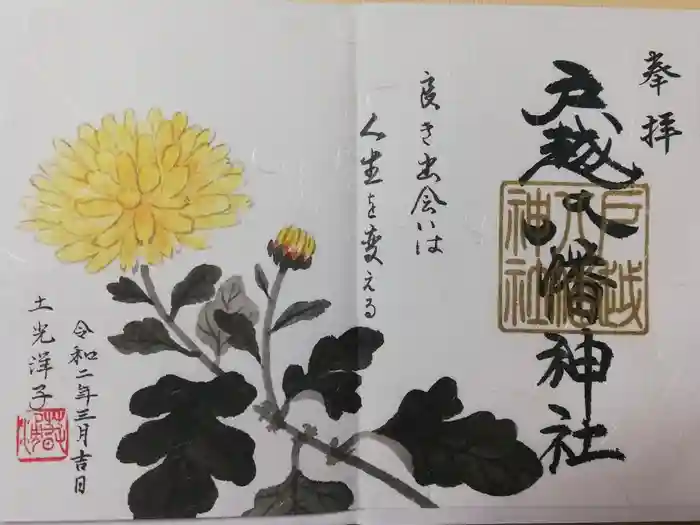 奉拝
戸越八幡神社
戸越
八幡
神社
良き出会いは
人生を変える
令和二年三月吉日
土光洋子